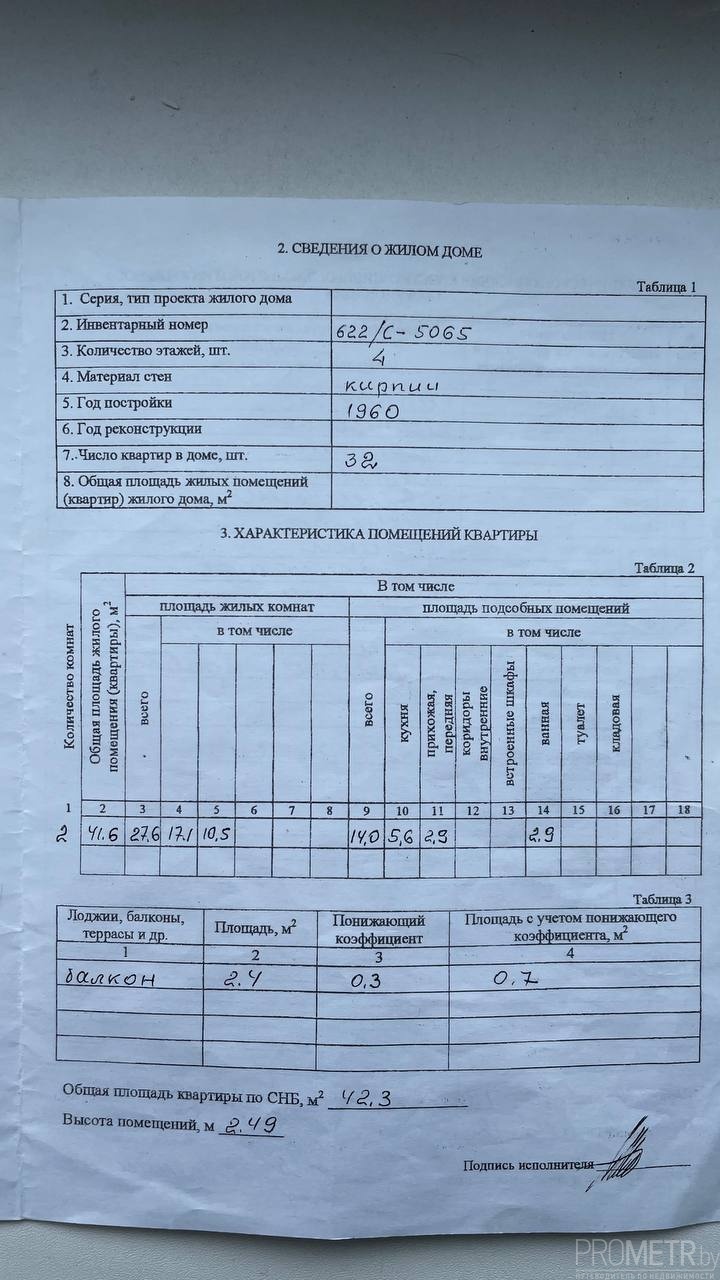 2. СВЕДЕНИЯ О ЖИЛОМ ДОМЕ
Таблица 1
1. Серия, тип проекта жилого дома
2. Инвентарный номер 622/С-5065
3. Количество этажей, шт. 4
4. Материал стен кирпич
5. Год постройки 1960
6. Год реконструкции
7. Число квартир в доме, шт. 32
8. Общая площадь жилых помещений
(квартир) жилого дома, м²
3. ХАРАКТЕРИСТИКА ПОМЕЩЕНИЙ КВАРТИРЫ
Таблица 2
Количество комнат
Общая площадь жилого
помещения (квартиры), м²
В том числе
площадь жилых комнат площадь подсобных помещений
всего
в том числе
всего
в том числе
кухня
прихожая,
передняя
коридоры
внутренние
встроенные шкафы
ванная
туалет
кладовая
1 2 3 4 5 6 7 8 9 10 11 12 13 14 15 16 17 18
2 41.6 27,6 17,1 10,5 14,0 5,6 2,9 2,9
Таблица 3
Лоджии, балконы,
террасы и др.
Площадь, м²
Понижающий
коэффициент
Площадь с учетом понижающего
коэффициента, м²
1 2 3 4
балкон 2.4 0,3 0,7
Общая площадь квартиры по СНБ, м² 42,3
Высота помещений, м 2.49
Подпись исполнителя
PROMETR.by
ПУТЕВОДИТЕЛЬ ПО НЕДВИЖИМОСТИ